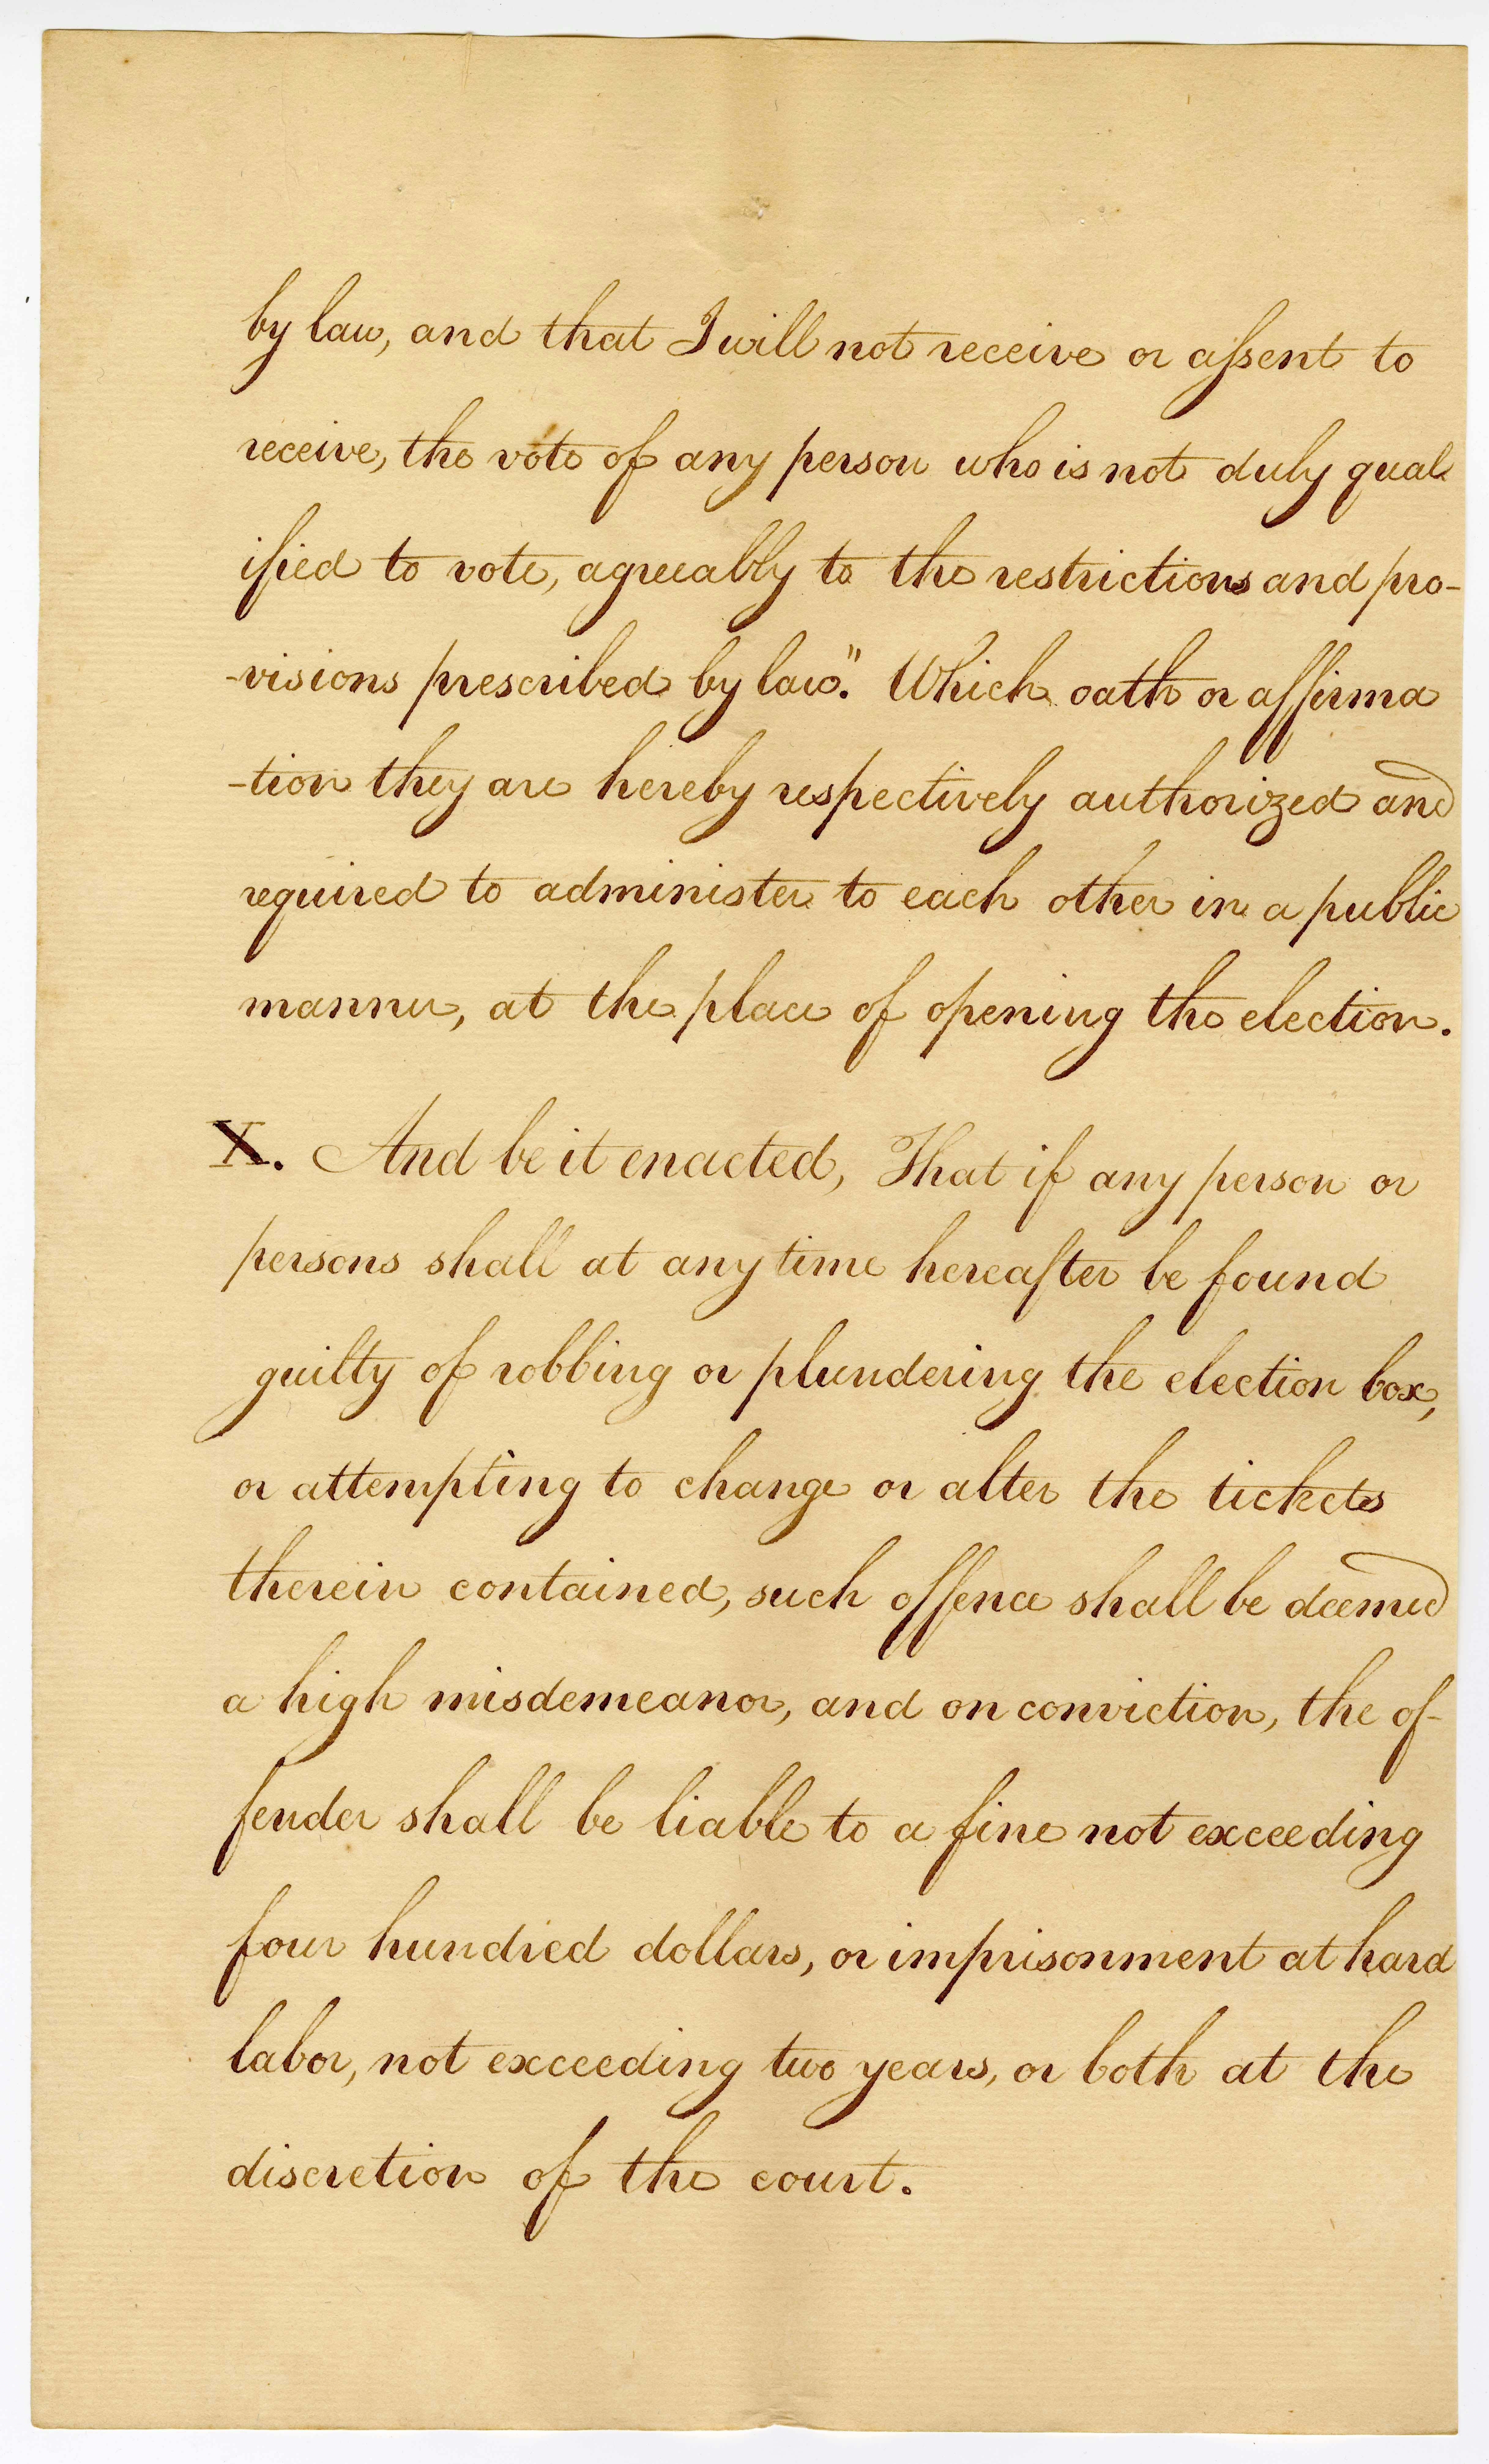 by law, and that I will not receive or aſsent to
receive, the vote of any person who is not duly qual
ified to vote, agreeably to the restrictions and pro-
-visions prescribed by law." Which oath or affirma
-tion they are hereby respectively authorized and
required to administer to each other in a public
manner, at the place of opening the election.
X. And be it enacted, That if any person or
persons shall at any time hereafter be found
guilty of robbing or plundering the election box,
or attempting to change or alter the tickets
therein contained, such offence shall be deemed
a high misdemeanor, and on conviction, the of-
fender shall be liable to a fine not exceeding
four hundred dollars, or imprisonment at hard
labor, not exceeding two years, or both at the
discretion of the court.